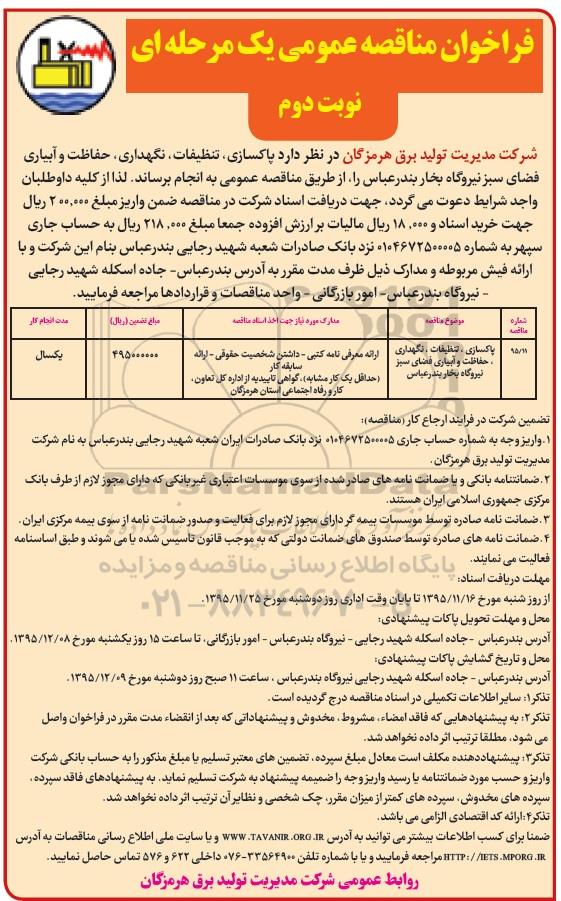 فراخوان مناقصه عمومی یک مرحله ای
نوبت دوم
شرکت مدیریت تولید برق هرمزگان در نظر دارد پاکسازی، تنظیفات، نگهداری، حفاظت و آبیاری
فضای سبز نیروگاه بخار بندرعباس را، از طریق مناقصه عمومی به انجام برساند. لذا از کلیه داوطلبان
واجد شرایط دعوت می گردد، جهت دریافت اسناد شرکت در مناقصه ضمن واریز مبلغ ۲۰۰,۰۰۰ ریال
جهت خرید اسناد و ۱۸,۰۰۰ ریال مالیات بر ارزش افزوده جمعا مبلغ ۲۱۸,۰۰۰ ریال به حساب جاری
سپهر به شماره ۰۱۰۴۶۷۲۵۰۰۰۰۵ نزد بانک صادرات شعبه شهید رجایی بندرعباس بنام این شرکت و با
ارائه فیش مربوطه و مدارک ذیل ظرف مدت مقرر به آدرس بندرعباس- جاده اسکله شهید رجایی
- نیروگاه بندرعباس - امور بازرگانی - واحد مناقصات و قراردادها مراجعه فرمایید.
شماره مناقصه
موضوع مناقصه
مدارک مورد نیاز جهت اخذ اسناد مناقصه
مبلغ تضمین (ریال)
مدت انجام کار
۹۵/۱۱
پاکسازی ، تنظیفات ، نگهداری
، حفاظت و آبیاری فضای سبز
نیروگاه بخار بندرعباس
ارائه معرفی نامه کتبی - داشتن شخصیت حقوقی - ارائه
سابقه کار
(حداقل یک کار مشابه)، گواهی تاییدیه از اداره کل تعاون،
کار و رفاه اجتماعی استان هرمزگان
۴۹۵۰۰۰۰۰۰
یکسال
تضمین شرکت در فرایند ارجاع کار (مناقصه):
۱.واریز وجه به شماره حساب جاری ۰۱۰۴۶۷۲۵۰۰۰۰۵ نزد بانک صادرات ایران شعبه شهید رجایی بندرعباس به نام شرکت
مدیریت تولید برق هرمزگان.
۲.ضمانتنامه بانکی و یا ضمانت نامه های صادر شده از سوی موسسات اعتباری غیر بانکی که دارای مجوز لازم از طرف بانک
مرکزی جمهوری اسلامی ایران هستند.
۳.ضمانت نامه صادره توسط موسسات بیمه گر دارای مجوز لازم برای فعالیت و صدور ضمانت نامه از سوی بیمه مرکزی ایران.
۴.ضمانت نامه های صادره توسط صندوق های ضمانت دولتی که به موجب قانون تاسیس شده یا می شوند و طبق اساسنامه
فعالیت می نمایند.
مهلت دریافت اسناد:
از روز شنبه مورخ ۱۳۹۵/۱۱/۱۶ تا پایان وقت اداری روز دوشنبه مورخ ۱۳۹۵/۱۱/۲۵.
محل و مهلت تحویل پاکات پیشنهادی:
آدرس بندرعباس -جاده اسکله شهید رجایی - نیروگاه بندرعباس - امور بازرگانی، تا ساعت ۱۵ روز یکشنبه مورخ ۱۳۹۵/۱۲/۰۸.
محل و تاریخ گشایش پاکات پیشنهادی:
آدرس بندرعباس - جاده اسکله شهید رجایی نیروگاه بندرعباس ، ساعت ۱۱ صبح روز دوشنبه مورخ ۱۳۹۵/۱۲/۰۹.
تذکر۱: سایر اطلاعات تکمیلی در اسناد مناقصه درج گردیده است.
تذکر۲: به پیشنهادهایی که فاقد امضاء، مشروط، مخدوش و پیشنهاداتی که بعد از انقضاء مدت مقرر در فراخوان واصل
می شود، مطلقا ترتیب اثر داده نخواهد شد.
تذکر۳: پیشنهاددهنده مکلف است معادل مبلغ سپرده، تضمین های معتبر تسلیم یا مبلغ مذکور را به حساب بانکی شرکت
واریز و حسب مورد ضمانتنامه یا رسید واریز وجه را ضمیمه پیشنهاد به شرکت تسلیم نماید. به پیشنهادهای فاقد سپرده،
سپرده های مخدوش، سپرده های کمتر از میزان مقرر، چک شخصی و نظایر آن ترتیب اثر داده نخواهد شد.
تذکر۴:ارائه کد اقتصادی الزامی می باشد.
ضمنا برای کسب اطلاعات بیشتر می توانید به آدرس WWW.TAVANIR.ORG.IR و یا سایت ملی اطلاع رسانی مناقصات به آدرس
HTTP://IETS.MPORG.IR مراجعه فرمایید و یا با شماره تلفن ۳۳۵۶۴۹۰۰-۰۷۶ داخلی ۶۲۲ و ۵۷۶ تماس حاصل نمایید.
روابط عمومی شرکت مدیریت تولید برق هرمزگان
ParsNamadData
پایگاه اطلاع رسانی مناقصه و مزایده
۰۲۱-۸۸۳۴۹۶۷۰-۵